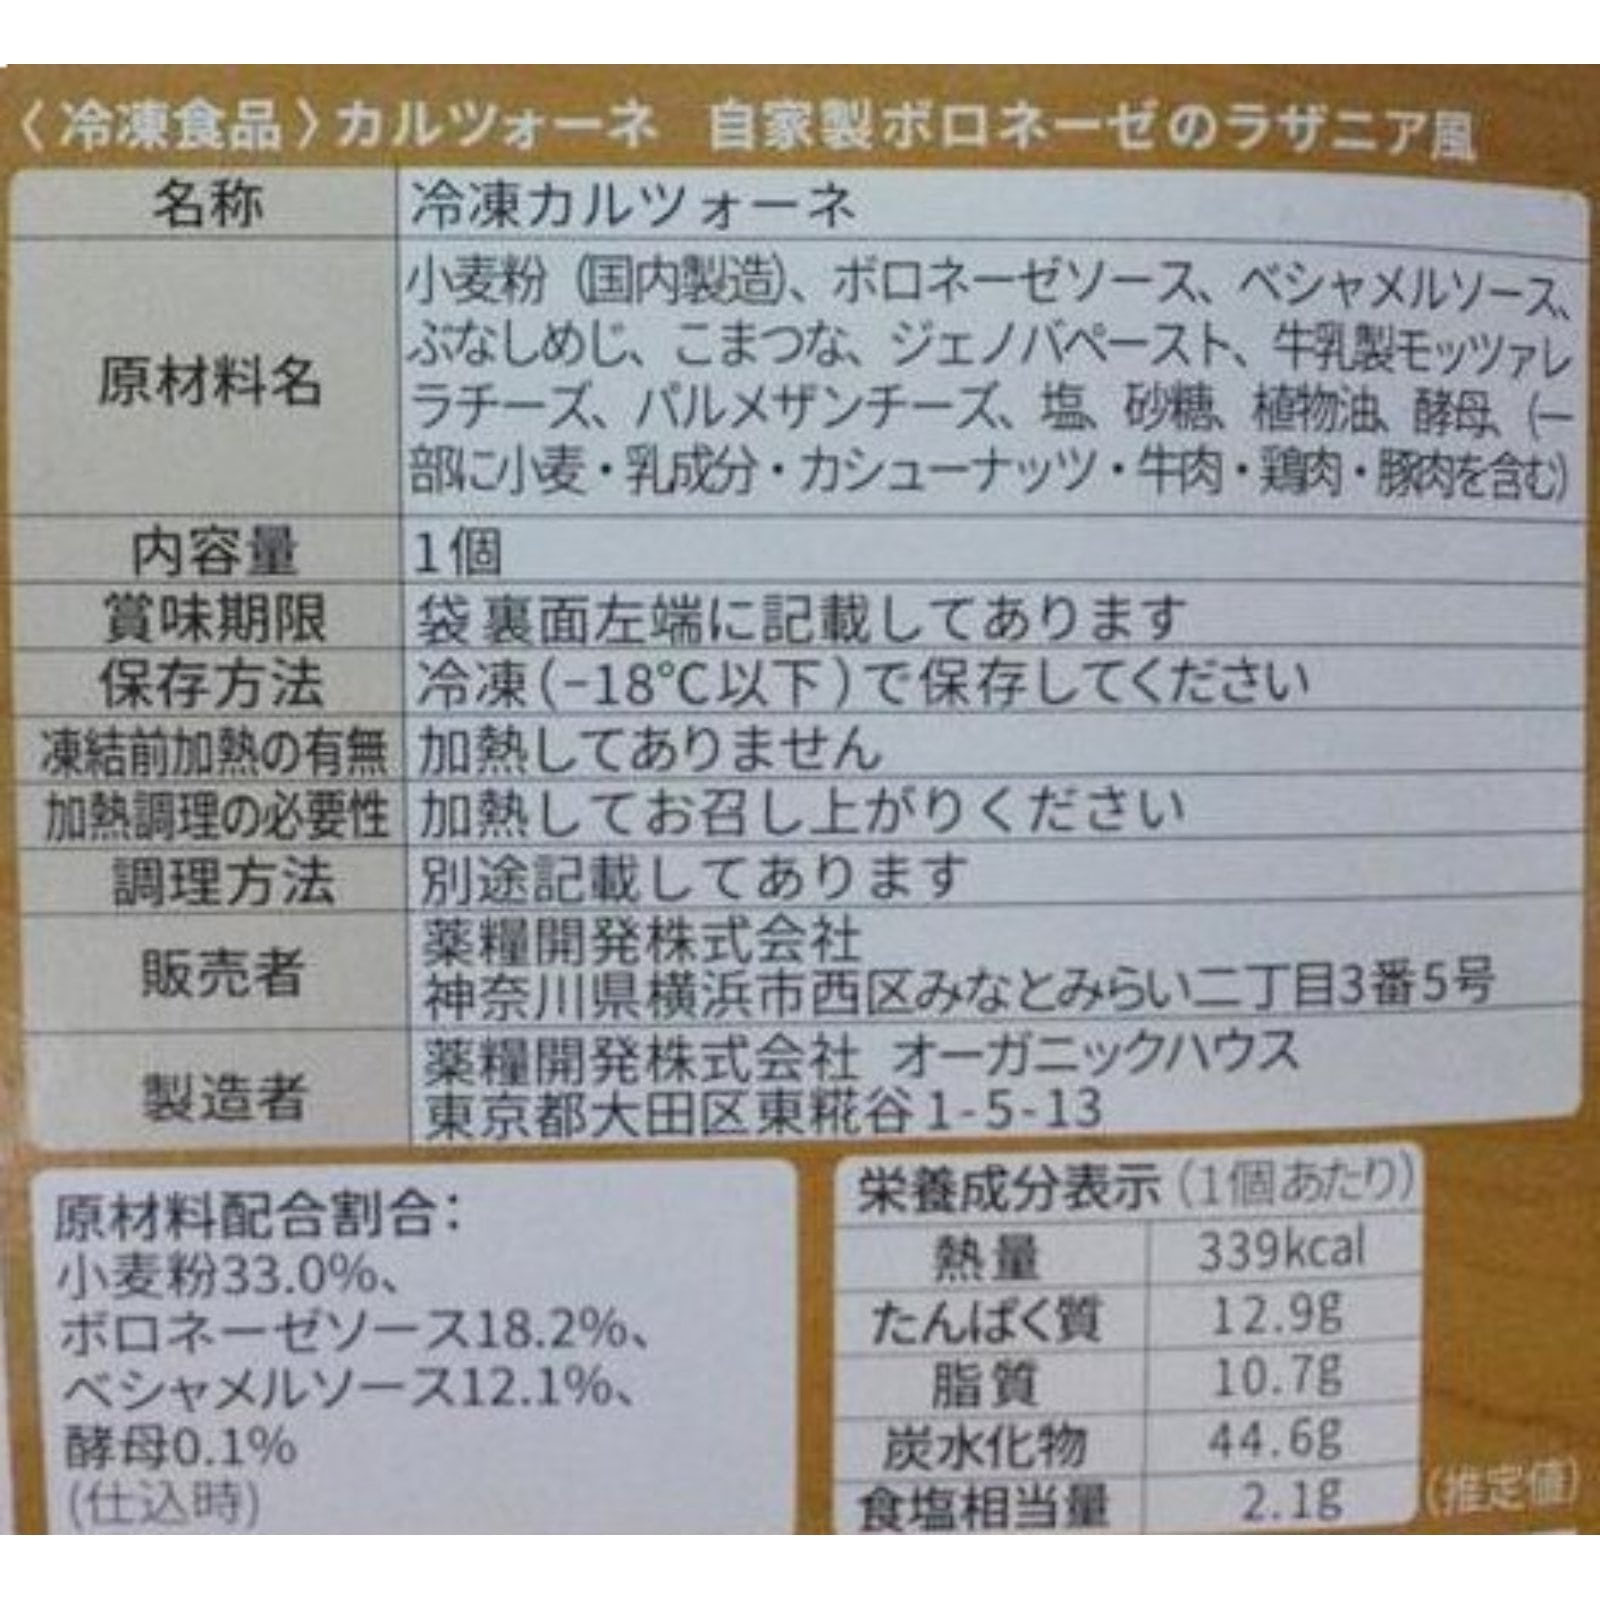 〈冷凍食品〉カルツォーネ 自家製ボロネーゼのラザニア風
名称 冷凍カルツォーネ
原材料名 小麦粉(国内製造)、ボロネーゼソース、ベシャメルソース、
ぶなしめじ、こまつな、ジェノバペースト、牛乳製モッツァレ
ラチーズ、パルメザンチーズ、塩、砂糖、植物油、酵母、(一
部に小麦・乳成分・カシューナッツ・牛肉・鶏肉・豚肉を含む)
内容量 1個
賞味期限 袋裏面左端に記載してあります
保存方法 冷凍(-18℃以下)で保存してください
凍結前加熱の有無 加熱してありません
加熱調理の必要性 加熱してお召し上がりください
調理方法 別途記載してあります
販売者 薬糧開発株式会社
神奈川県横浜市西区みなとみらい二丁目3番5号
製造者 薬糧開発株式会社 オーガニックハウス
東京都大田区東糀谷1-5-13
原材料配合割合:
小麦粉33.0%、
ボロネーゼソース18.2%、
ベシャメルソース12.1%、
酵母0.1%
(仕込時)
栄養成分表示(1個あたり)
熱量 339kcal
たんぱく質 12.9g
脂質 10.7g
炭水化物 44.6g
食塩相当量 2.1g
(推定値)